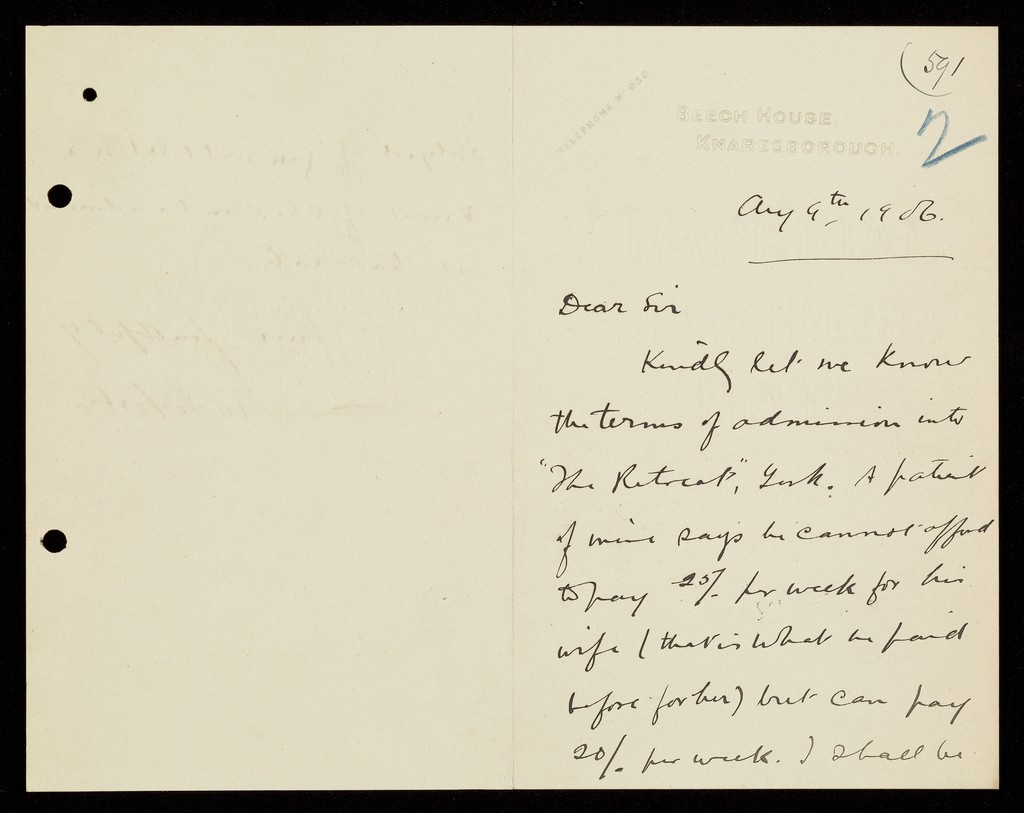 (591
2
TELEPHONE Nº 020.
BEECH HOUSE,
KNARESBOROUGH.
Aug 9th 1906.
Dear Sir
Kindly let me know
the terms of admission into
"The Retreat", York. A patient
of mine says he cannot afford
to pay 25/- per week for his
wife (that is what he paid
before for her) but can pay
20/- per week. I shall be